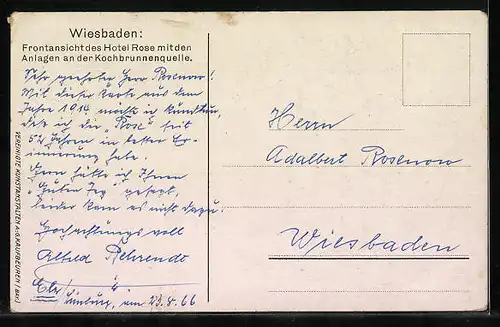 Wiesbaden:
Frontansicht des Hotel Rose mit den
Anlagen an der Kochbrunnenquelle.
Sehr geehrter Herr Rosenow!
Mit dieser Karte aus dem
Jahre 1914 möchte ich kundtun,
daß ich die "Rose" seit
52 Jahren in fester Er-
innerung habe.
Gern hätte ich Ihnen
"Guten Tag" gesagt,
leider kam es nicht dazu.
Hochachtungsvoll
Alfred Behrendt
am 23.8.66
Herrn
Adalbert Rosenow
Wiesbaden
VEREINIGTE KUNSTANSTALTEN A-G KAUFBEUREN